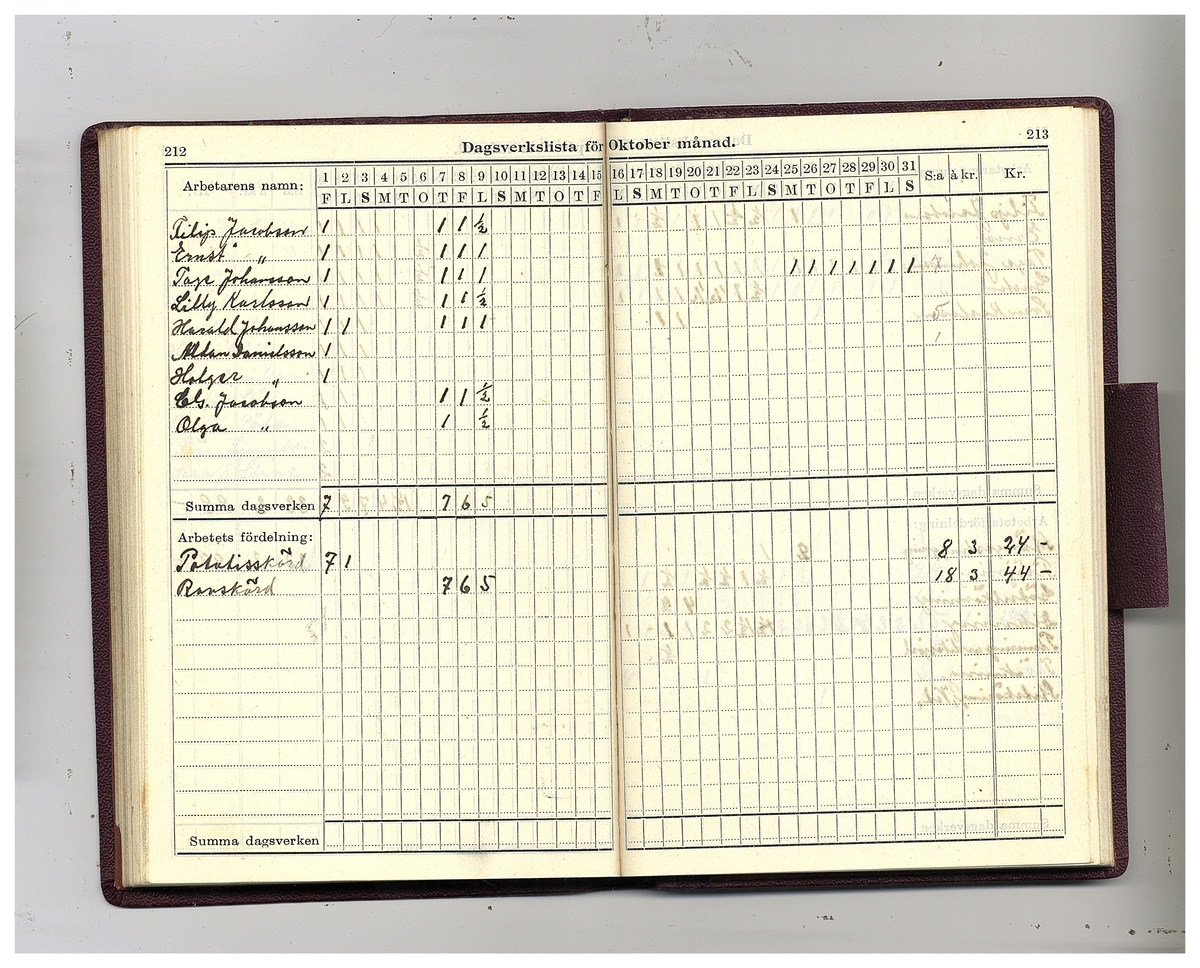 212
Dagsverkslista för Oktober månad.
213
Arbetarens namn: 1 2 3 4 5 6 7 8 9 10 11 12 13 14 15 16 17 18 19 20 21 22 23 24 25 26 27 28 29 30 31 S:a à kr. Kr.
F L S M T O T F L S M T O T F L S M T O T F L S M T O T F L S
Filip Jacobsson 1 1 1 ½
Ernst " 1 1 1 1
Tage Johansson 1 1 1 1 1 1 1 1 1 1 1
Lilly Karlsson 1 1 1 ½
Harald Johansson 1 1 1 1 1
Danielsson 1
Holger " 1
Jacobson 1 1 ½
Olga " 1 ½
Summa dagsverken 7 7 6 5
Arbetets fördelning:
Potatisskörd 7 1 8 3 24 –
Rovskörd 7 6 5 18 3 44 –
Summa dagsverken